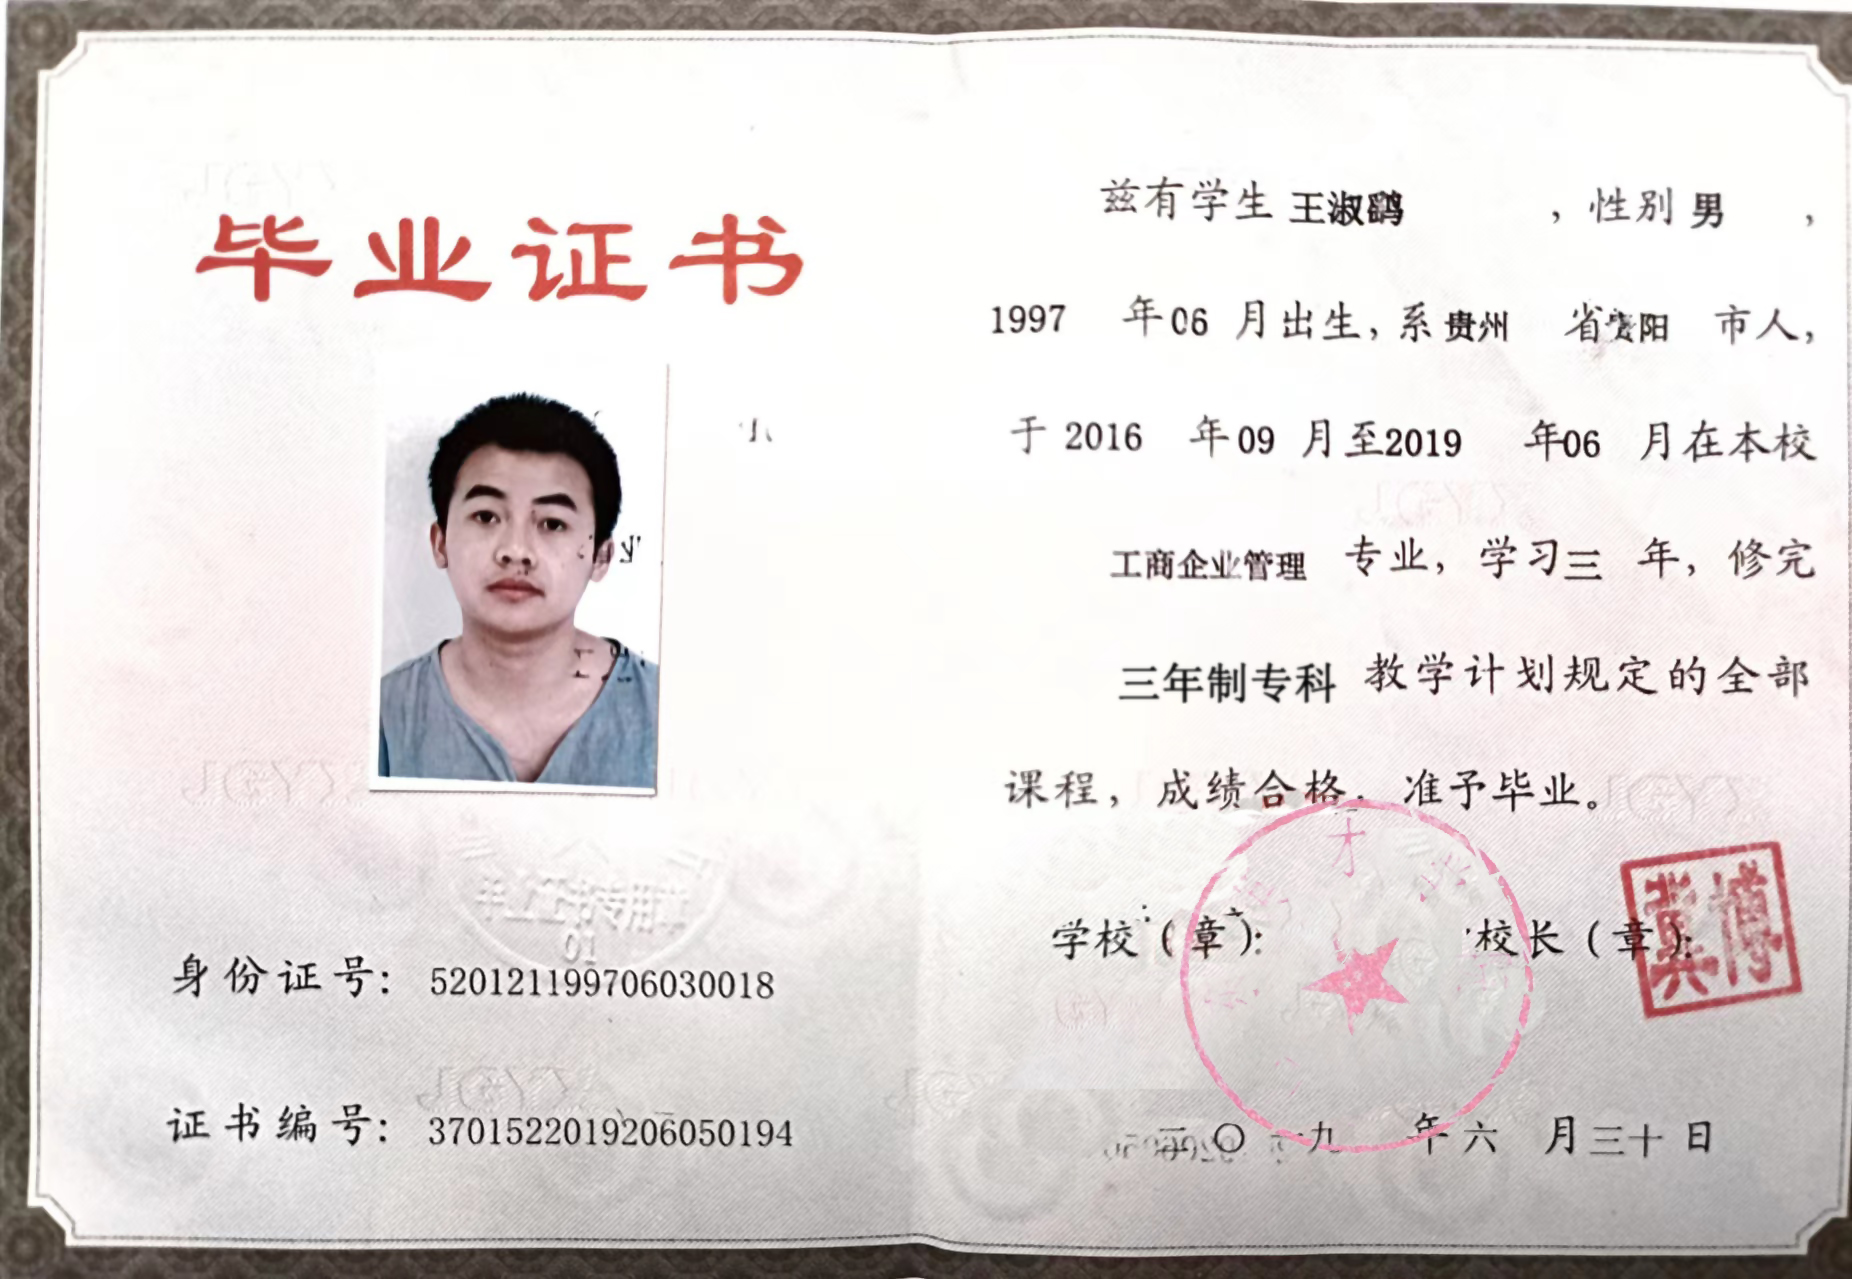 毕业证书
身份证号：520121199706030018
证书编号：3701522019206050194
兹有学生 王淑鹞 ，性别 男 ，
1997 年 06 月出生，系 贵州 省贵阳 市人，
于 2016 年 09 月至2019 年06 月在本校
工商企业管理 专业，学习三 年，修完
三年制专科 教学计划规定的全部
课程，成绩合格，准予毕业。
学校（章）： 校长（章）：
二〇一九 年 六 月 三十 日
毕业证书专用章
01